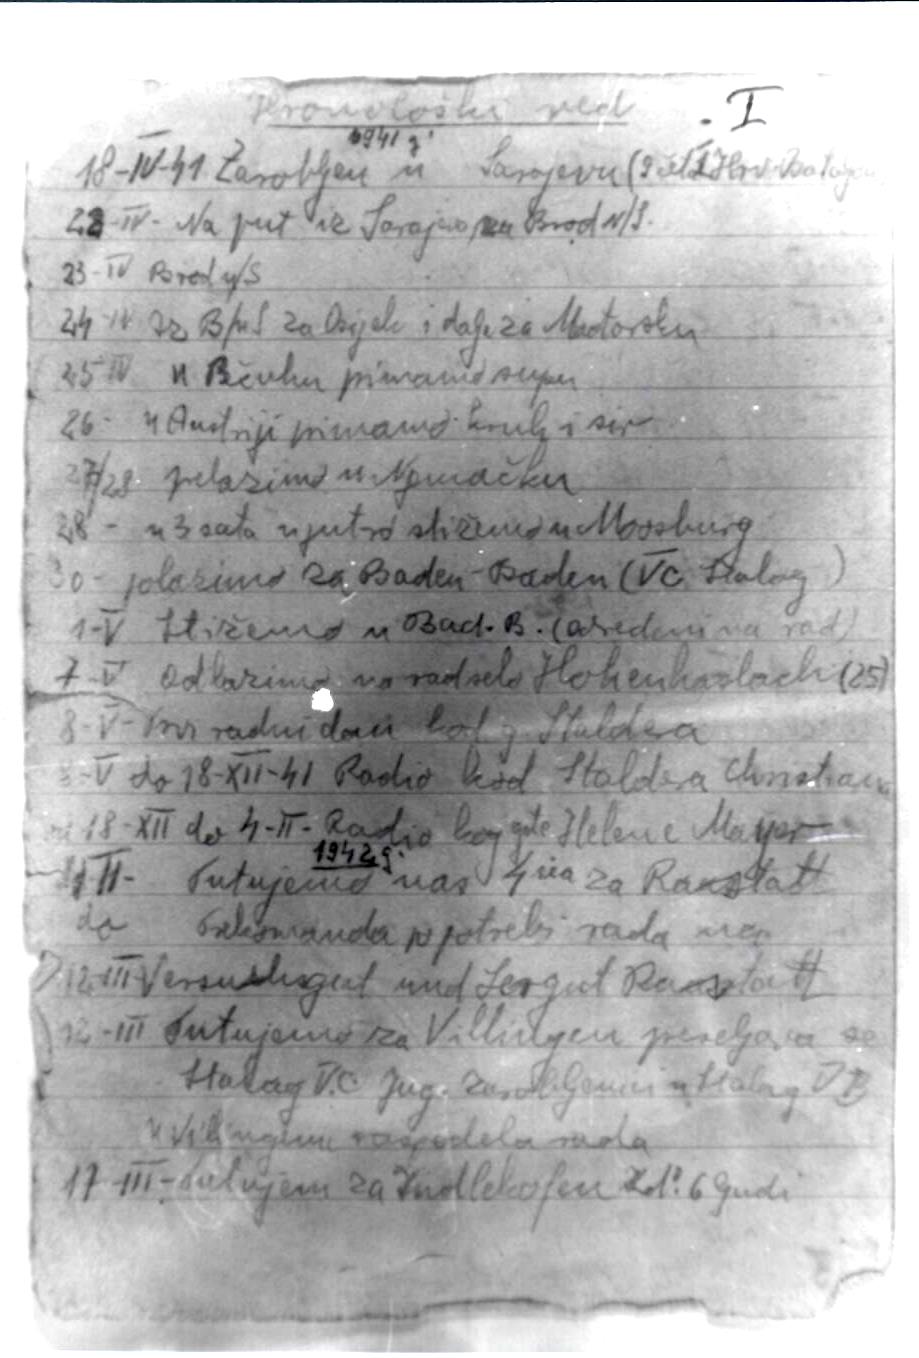 Kronološki red . I
1941 g.
18-IV-41 Zarobljen u Sarajevu (
22-IV- Na put iz Sarajeva za Brod n/S.
23-IV Brod n/S
24-IV Iz B/nS za Osijek i dalje za Mađarsku
25-IV u Pečuhu primamo supu
26- u Austriji primamo kruh i sir
27/28 prelazimo u Njemačku
28- u 3 sata ujutro stižemo u Moosburg
30- polazimo za Baden-Baden (VC Stalag)
1-V Stižemo u Bad. B. (određeni na rad)
7-V odlazimo na rad selo Hohenhaslach (25)
8-V- prvi radni dan kod g. Staldera
8-V do 18-XII-41 Radio kod Staldera Christiana
od 18-XII do 4-II- Radio kog gđe Helene Mayer
1942 g.
II- Putujemo nas 4 za Rastatt
do po potrebi rada na
12-III und Rastatt
12-III Putujemo za Villingen se
Stalag V.C Jug. zarobljenici u Stalag VB
u Villingenu raspodela rada
17-III- Putujem za Indlekofen 6 ljudi